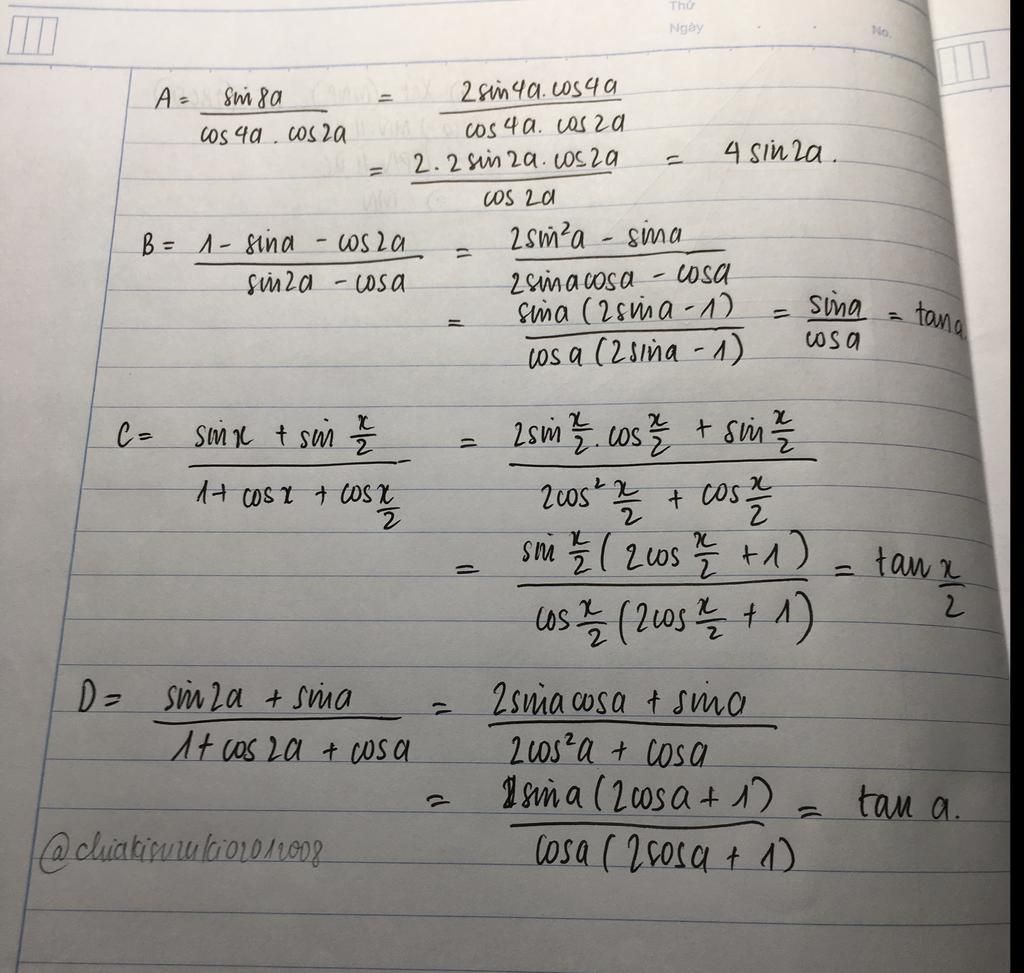 Thứ
Ngày No.
A = sin8a / (cos4a . cos2a) = 2sin4a.cos4a / (cos4a. cos2a)
= 2.2sin2a.cos2a / cos2a = 4sin2a.
B = (1 - sina - cos2a) / (sin2a - cosa) = (2sin²a - sina) / (2sinacosa - cosa)
= sina(2sina - 1) / cosa(2sina - 1) = sina / cosa = tana.
C = (sinx + sin x/2) / (1 + cosx + cos x/2) = (2sin x/2 . cos x/2 + sin x/2) / (2cos² x/2 + cos x/2)
= sin x/2 (2cos x/2 + 1) / cos x/2 (2cos x/2 + 1) = tan x/2
D = (sin2a + sina) / (1 + cos2a + cosa) = (2sinacosa + sina) / (2cos²a + cosa)
= sina(2cosa + 1) / cosa(2cosa + 1) = tan a.